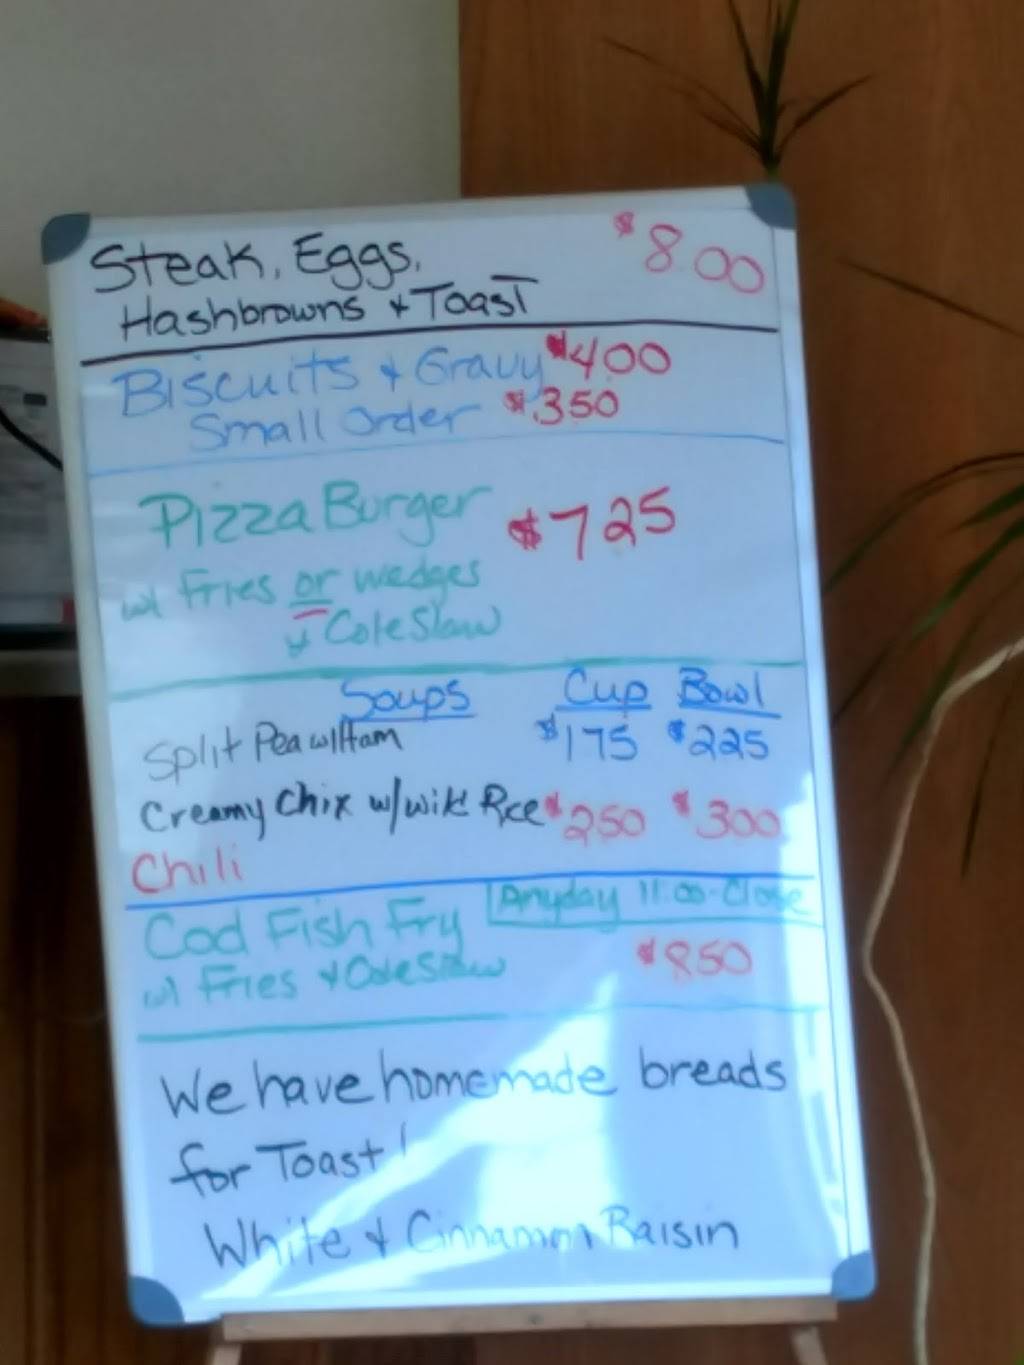 Steak, Eggs, $8.00
Hashbrowns + Toast
Biscuits + Gravy $4.00
Small Order $.350
Pizza Burger $725
w/ Fries or wedges
+ Cole Slaw
Soups Cup Bowl
Split Pea w/Ham $175 $225
Creamy Chix w/wild Rce $250 $300
Chili
Anyday 11:00-Close
Cod Fish Fry
w/ Fries + Cole Slaw $850
We have homemade breads
for Toast!
White + Cinnamon Raisin